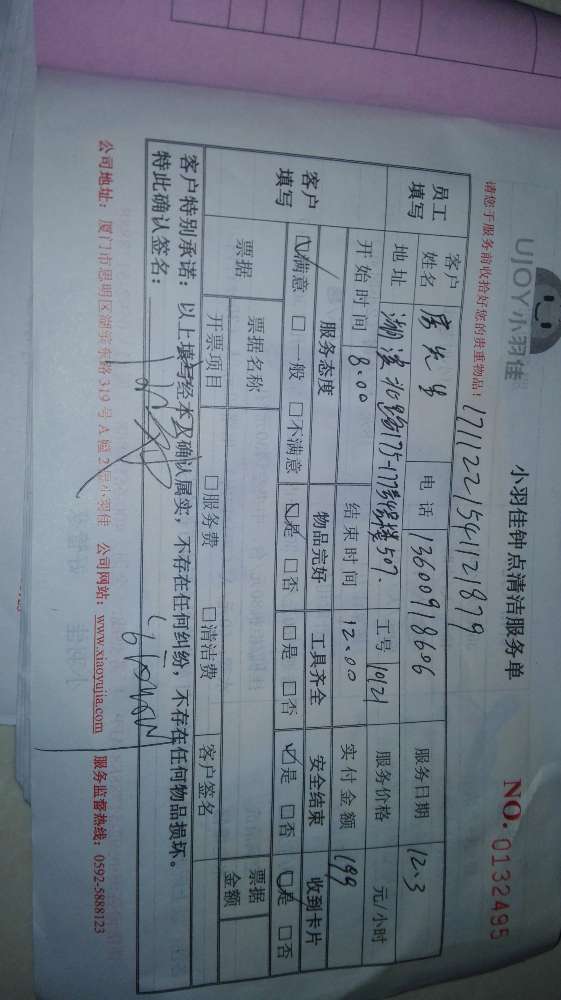 UJOY小羽佳 小羽佳钟点清洁服务单 NO. 0132495
请您于服务前收拾好您的贵重物品!
1711221541121879
员工填写 客户姓名 先生 电话 13600918606 服务日期 12.3
地址 湖滨北路175-177号 楼507. 工号 10121 服务价格 元/小时
开始时间 8.00 结束时间 12.00 实付金额 199
客户填写 服务态度 物品完好 工具齐全 安全结束 收到卡片
☑满意 □一般 □不满意 ☑是 □否 □是 □否 ☑是 □否 ☑是 □否
票据 票据名称 客户签名 票据金额
开票项目 □服务费 □清洁费
客户特别承诺:以上填写经本人确认属实,不存在任何纠纷,不存在任何物品损坏。
特此确认签名:
公司地址:厦门市思明区湖滨东路319号A幢2层小羽佳 公司网站:www.xiaoyujia.com 服务监督热线:0592-5888123